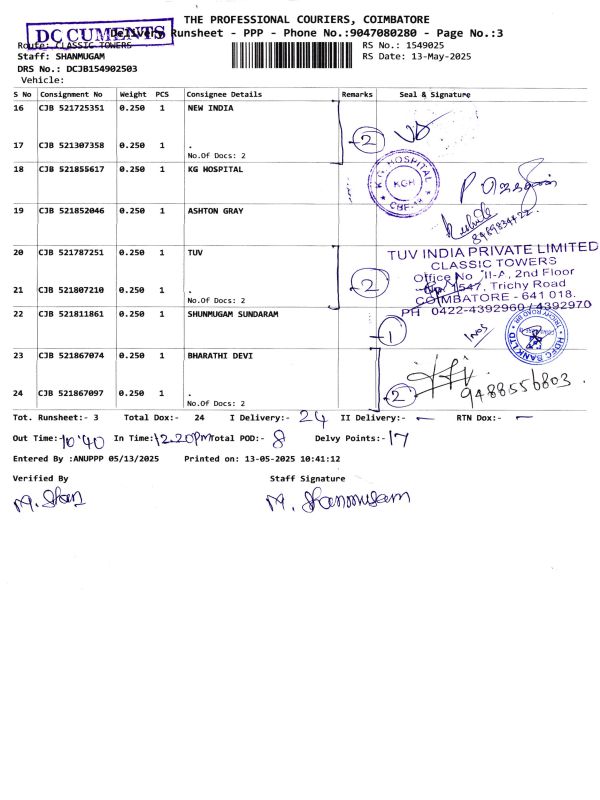 THE PROFESSIONAL COURIERS, COIMBATORE
DOCUMENTS
Delivery Runsheet - PPP - Phone No.:9047080280 - Page No.:3
Route: CLASSIC TOWERS
RS No.: 1549025
Staff: SHANMUGAM
RS Date: 13-May-2025
DRS No.: DCJB154902503
Vehicle:
S No Consignment No Weight PCS Consignee Details Remarks Seal & Signature
16 CJB 521725351 0.250 1 NEW INDIA
2
17 CJB 521307358 0.250 1 .
No.Of Docs: 2
18 CJB 521855617 0.250 1 KG HOSPITAL
K G HOSPITAL
KGH
CBE-18
19 CJB 521852046 0.250 1 ASHTON GRAY
20 CJB 521787251 0.250 1 TUV
TUV INDIA PRIVATE LIMITED
CLASSIC TOWERS
Office No II-A, 2nd Floor
1547, Trichy Road
COIMBATORE - 641 018.
PH 0422-4392960 / 4392970
21 CJB 521807210 0.250 1 .
2
No.Of Docs: 2
22 CJB 521811861 0.250 1 SHUNMUGAM SUNDARAM
1
HDFC BANK LTD
TRICHY ROAD BR
23 CJB 521867074 0.250 1 BHARATHI DEVI
9488556803
24 CJB 521867097 0.250 1 .
2
No.Of Docs: 2
Tot. Runsheet:- 3 Total Dox:- 24 I Delivery:- 24 II Delivery:- – RTN Dox:- –
Out Time:- 10'40 In Time: 12.20pm Total POD:- 8 Delvy Points:- 17
Entered By :ANUPPP 05/13/2025 Printed on: 13-05-2025 10:41:12
Verified By Staff Signature
M. Shan M. Shanmugam